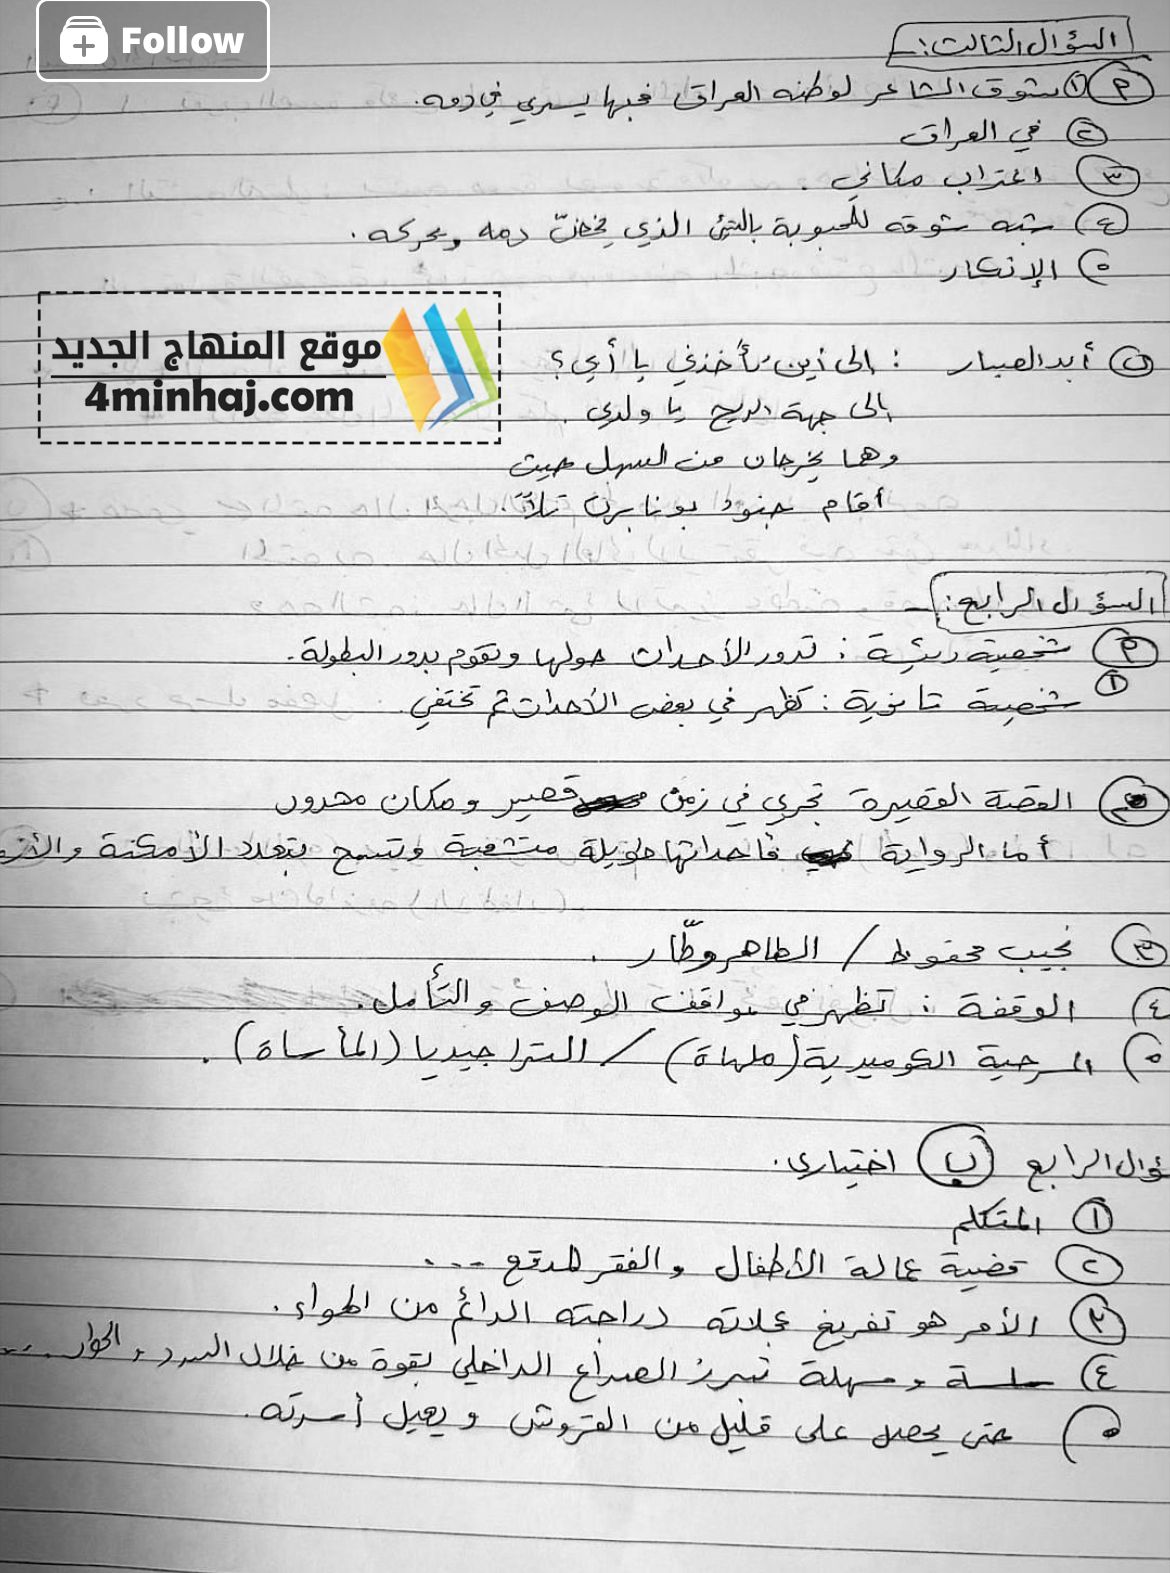 Follow
السؤال الثالث:
٢) ١) شوق الشاعر لوطنه العراق فحبها يسري في دمه.
٢) في العراق
٣) اغتراب مكاني.
٤) شبه شوقه للمحبوبة بالشيء الذي يخضّ دمه ويحركه.
٥) الإنكار
موقع المنهاج الجديد
4minhaj.com
ن) أبد الصبار : إلى أين تأخذني يا أبي؟
إلى جهة الريح يا ولدي.
وهما يخرجان من السهل حيث
أقام جنود بونابرت تلاً.
السؤال الرابع:
٢) شخصية رئيسة : تدور الأحداث حولها وتقوم بدور البطولة.
١) شخصية ثانوية : تظهر في بعض الأحداث ثم تختفي.
القصة القصيرة تجري في زمن قصير ومكان محدود
أما الرواية فأحداثها طويلة متشعبة وتسمح بتعدد الأمكنة والأزم
٣) نجيب محفوظ / الطاهر وطّار.
٤) الوقفة : تظهر في مواقف الوصف والتأمل.
٥) المسرحية الكوميدية (ملهاة) / التراجيديا (المأساة).
ؤال الرابع ب) اختياري.
١) المتكلم
٢) قضية عمالة الأطفال والفقر المدقع ...
٣) الأمر هو تفريغ عجلاته دراجته الدائم من الهواء.
٤) سلسة وسهلة تبرز الصراع الداخلي بقوة من خلال السرد والحوار ....
٥) حتى يحصل على قليل من القروش ويعيل أسرته.